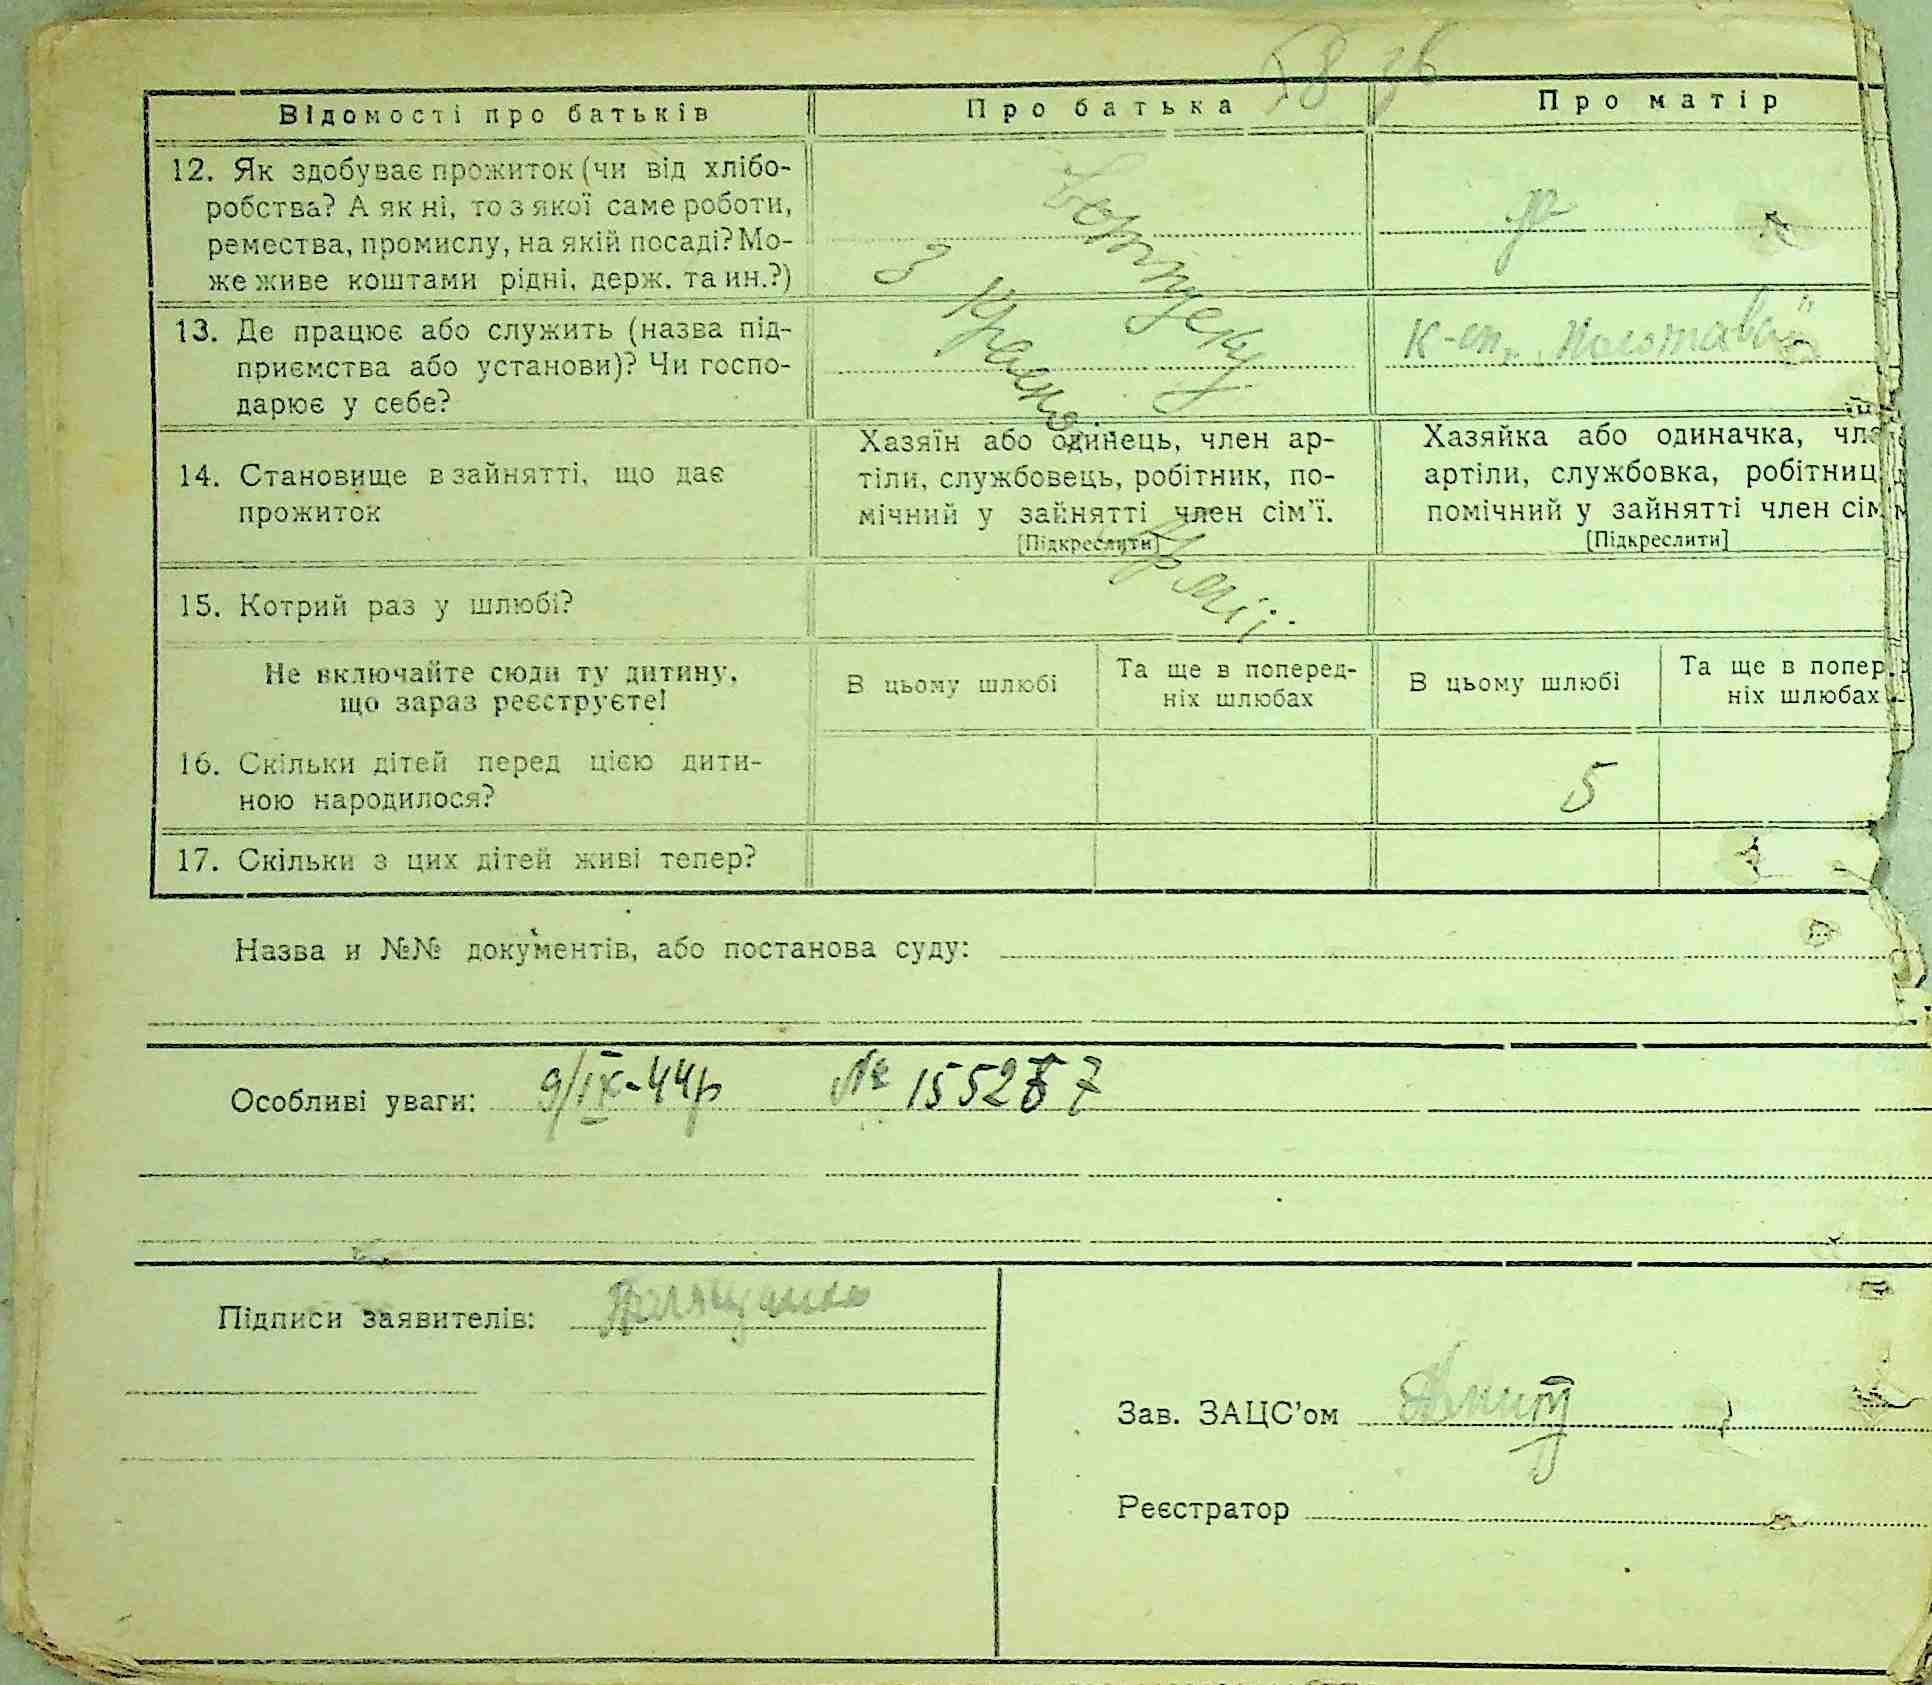 58 зв
Відомості про батьків
Про батька
Про матір
12. Як здобуває прожиток (чи від хлібо-
робства? А як ні, то з якої саме роботи,
ремества, промислу, на якій посаді? Мо-
же живе коштами рідні, держ. та ин.?)
З
Красно
Армії.
13. Де працює або служить (назва під-
приємства або установи)? Чи госпо-
дарює у себе?
14. Становище в зайнятті, що дає
прожиток
Хазяїн або одинець, член ар-
тіли, службовець, робітник, по-
мічний у зайнятті член сім'ї.
[Підкреслити]
Хазяйка або одиначка, чле
артіли, службовка, робітниц
помічний у зайнятті член сім
[Підкреслити]
15. Котрий раз у шлюбі?
Не включайте сюди ту дитину,
що зараз реєструєте!
В цьому шлюбі
Та ще в поперед-
ніх шлюбах
В цьому шлюбі
Та ще в попер
ніх шлюбах
16. Скільки дітей перед цією дити-
ною народилося?
5
17. Скільки з цих дітей живі тепер?
Назва и №№ документів, або постанова суду:
Особливі уваги: 9/IX-44р №
Підписи заявителів:
Зав. ЗАЦС'ом
Реєстратор